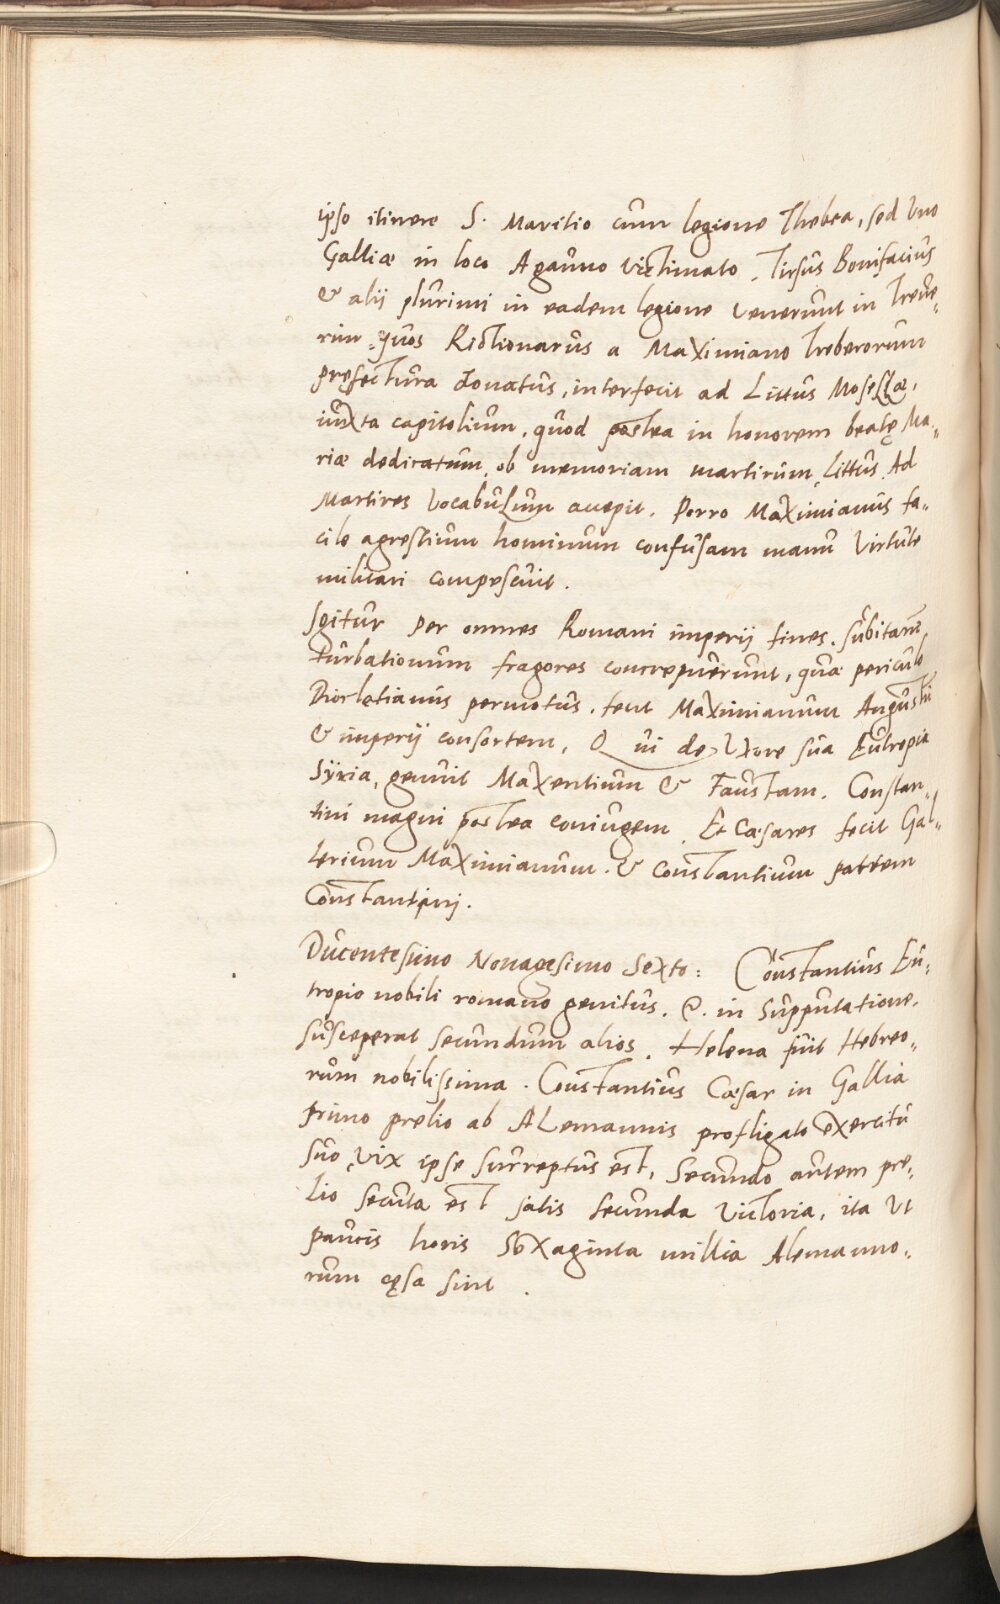 ipso itinere S. Mavitio cum legione Thebea, sed Uno
Galliæ in loco Agauno victimato, Tirsus Bonifacius
& alij plurimi in eadem legione venerunt in Treve-
rim, quos Rictionarus a Maximiano Treberorum
pręfectura donatus, interfecit ad Littus Mosellæ,
iuxta capitolium, quod postea in honorem beatę Ma-
riæ dedicatum, ob memoriam martirum, Littus Ad
Martires vocabulum accepit. Porro Maximianus fa-
cile agrestium hominum confusam manu virtute
militari compescuit.
Igitur per omnes Romani imperij fines, subitarum
turbationum fragores concrepuerunt, qua periculo
Diocletianus permotus, fecit Maximianum Augusti
& imperij consortem, Qui de Uxore sua Eutropia
Syria, genuit Maxentium & Faustam, Constan-
tini magni postea coniugem, Et Cæsares fecit Gal-
lerium Maximianum, & Constantium patrem
Constantini.
Ducentesimo Nonagesimo Sexto: Constantius Eu-
tropio nobili romano genitus, &. in supputatione.
susceperat secundum alios, Helena fuit Hebreo-
rum nobilissima. Constantius Cæsar in Gallia
primo prelio ab ALemannis profligato exercitu
suo, vix ipse surreptus est, Secundo autem pre-
lio secuta est satis secunda victoria, ita ut
paucis horis Sexaginta millia Alemanno-
rum cęsa sint.